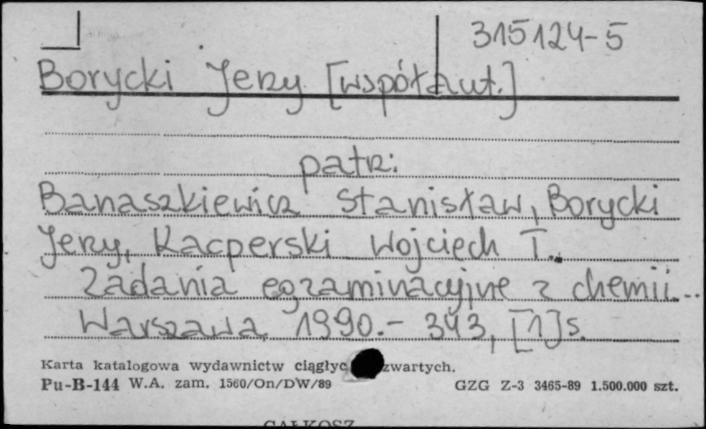 315124-5
Borycki Jerzy [współaut.]
patrz:
Banaszkiewicz Stanisław, Borycki
Jerzy, Kacperski Wojciech T.:
Zadania egzaminacyjne z chemii...
Warszawa 1990.- 343, [1]s.
Karta katalogowa wydawnictw ciągłyc zwartych.
Pu-B-144 W.A. zam. 1560/On/DW/89 GZG Z-3 3465-89 1.500.000 szt.